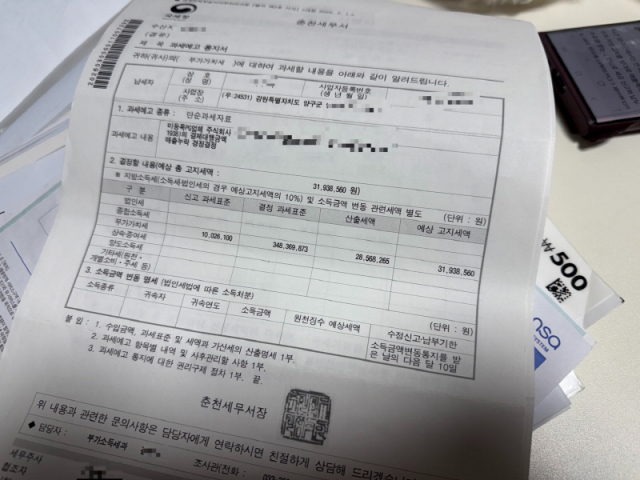 국세청
춘천세무서
수신자
(경유)
제 목 과세예고 통지서
귀하(귀사)의 ( 부가가치세 )에 대하여 과세할 내용을 아래와 같이 알려드립니다.
납세자
상 호
(성 명)
사업자등록번호
(생 년 월 일)
사업장
(주 소)
(우:24531) 강원특별자치도 양구군
1. 과세예고 종류 : 단순과세자료
과세예고 내용
미등록PG업체 주식회사
1938)의 결제대행금액
매출누락 경정결정
2. 결정할 내용(예상 총 고지세액: 31,938,560 원)
※ 지방소득세(소득세·법인세의 경우 예상고지세액의 10%) 및 소득금액 변동 관련세액 별도 (단위 : 원)
구 분 신고 과세표준 결정 과세표준 산출세액 예상 고지세액
법인세
종합소득세
부가가치세 10,026,100 348,369,873 28,568,265 31,938,560
상속·증여세
양도소득세
기타세(원천·
개별소비·주세 등)
3. 소득금액 변동 명세 (법인세법에 따른 소득처분) (단위 : 원)
소득종류 귀속자 귀속연도 소득금액 원천징수 예상세액 수정신고·납부기한
소득금액변동통지를 받
은 날의 다음 달 10일
붙 임 : 1. 수입금액, 과세표준 및 세액과 가산세의 산출명세 1부.
2. 과세예고 항목별 내역 및 사후관리할 사항 1부.
3. 과세예고 통지에 대한 권리구제 절차 1부. 끝.
춘천세무서장
위 내용과 관련한 문의사항은 담당자에게 연락하시면 친절하게 상담해 드리겠습니다
◆ 담당자 : 부가소득세과
세무주사 조사관(전화 :
협조자
₩500